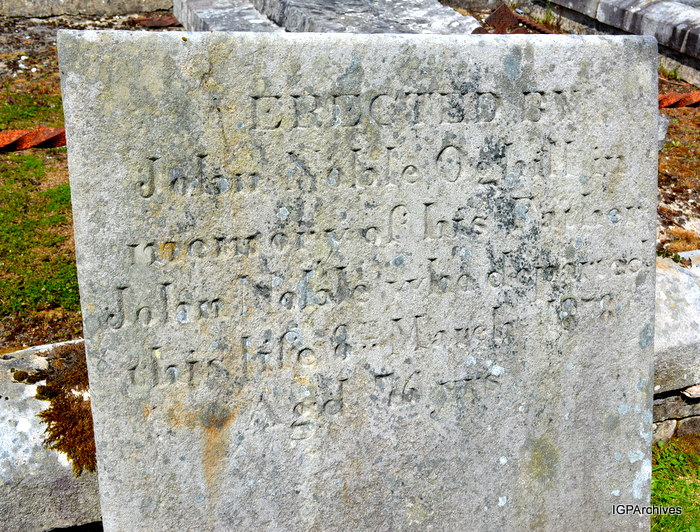 ERECTED BY
John Noble Oghill in
memory of his Father
John Noble who departed
this life 8th March 1878
Agd 76 yrs
IGPArchives